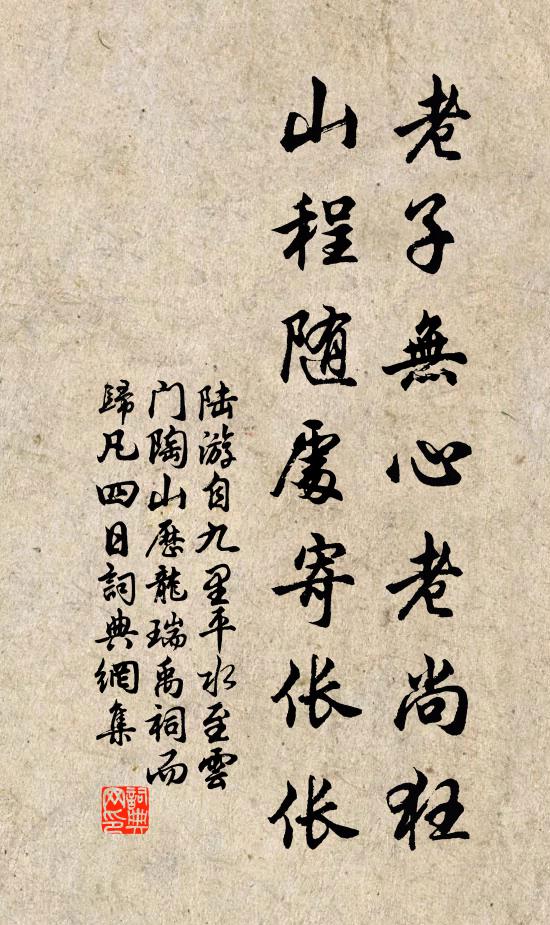 老子無心老尚狂
山程随處寄伥伥
陆游自九里平水至雲
门陶山歷龍瑞禹祠而
歸凡四日詞典網集
詞典网印